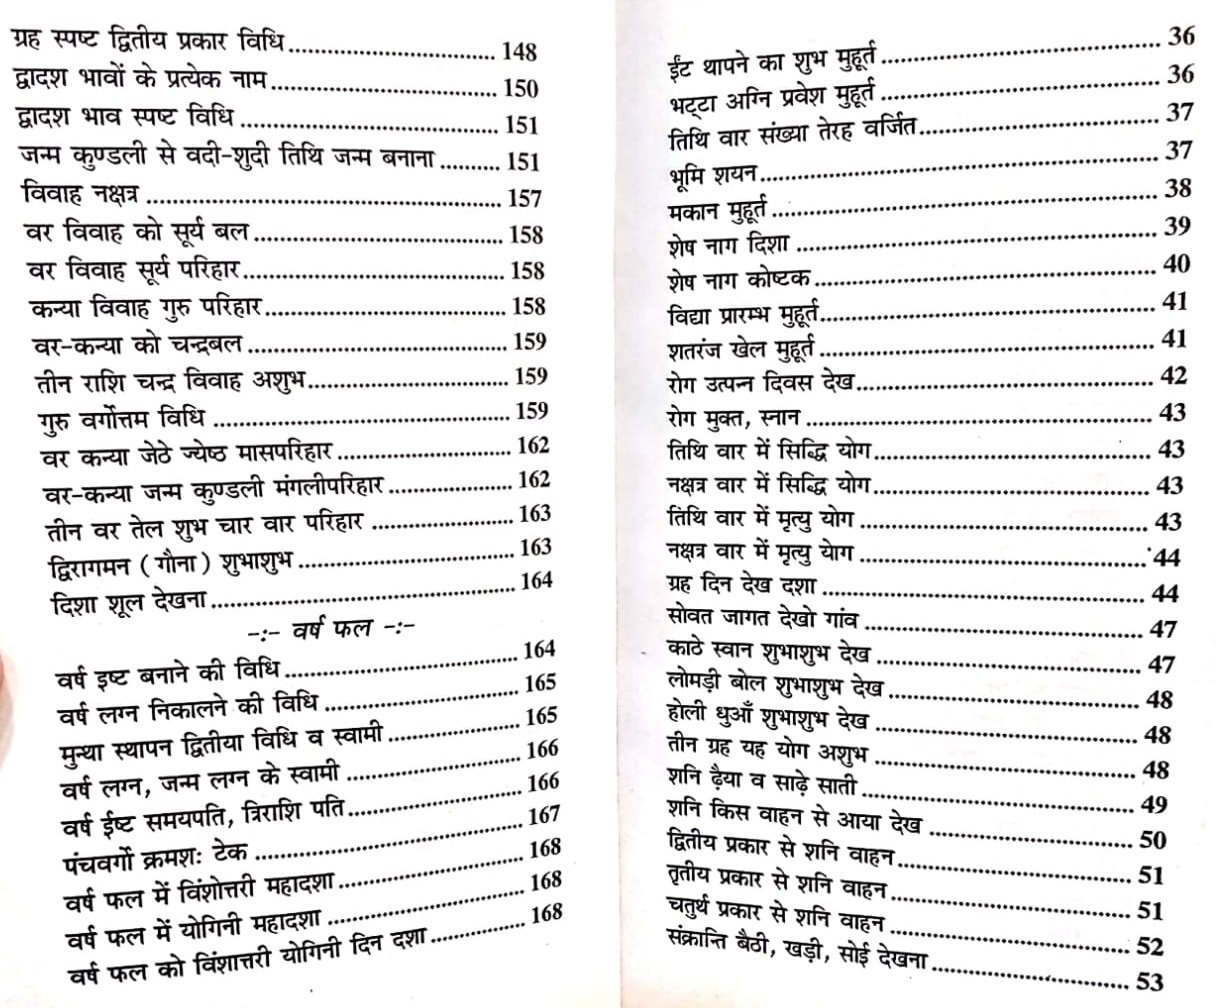 ग्रह स्पष्ट द्वितीय प्रकार विधि .......... 148
द्वादश भावों के प्रत्येक नाम .......... 150
द्वादश भाव स्पष्ट विधि .......... 151
जन्म कुण्डली से वदी-शुदी तिथि जन्म बनाना .......... 151
विवाह नक्षत्र .......... 157
वर विवाह को सूर्य बल .......... 158
वर विवाह सूर्य परिहार .......... 158
कन्या विवाह गुरु परिहार .......... 158
वर-कन्या को चन्द्रबल .......... 159
तीन राशि चन्द्र विवाह अशुभ .......... 159
गुरु वर्गोत्तम विधि .......... 159
वर कन्या जेठे ज्येष्ठ मासपरिहार .......... 162
वर-कन्या जन्म कुण्डली मंगलीपरिहार .......... 162
तीन वर तेल शुभ चार वार परिहार .......... 163
द्विरागमन ( गौना ) शुभाशुभ .......... 163
दिशा शूल देखना .......... 164
-:- वर्ष फल -:-
वर्ष इष्ट बनाने की विधि .......... 164
वर्ष लग्न निकालने की विधि .......... 165
मुन्था स्थापन द्वितीया विधि व स्वामी .......... 165
वर्ष लग्न, जन्म लग्न के स्वामी .......... 166
वर्ष ईष्ट समयपति, त्रिराशि पति .......... 166
पंचवर्गो क्रमशः टेक .......... 167
वर्ष फल में विंशोत्तरी महादशा .......... 168
वर्ष फल में योगिनी महादशा .......... 168
वर्ष फल को विंशात्तरी योगिनी दिन दशा .......... 168
ईंट थापने का शुभ मुहूर्त .......... 36
भट्टा अग्नि प्रवेश मुहूर्त .......... 36
तिथि वार संख्या तेरह वर्जित .......... 37
भूमि शयन .......... 37
मकान मुहूर्त .......... 38
शेष नाग दिशा .......... 39
शेष नाग कोष्टक .......... 40
विद्या प्रारम्भ मुहूर्त .......... 41
शतरंज खेल मुहूर्त .......... 41
रोग उत्पन्न दिवस देख .......... 42
रोग मुक्त, स्नान .......... 43
तिथि वार में सिद्धि योग .......... 43
नक्षत्र वार में सिद्धि योग .......... 43
तिथि वार में मृत्यु योग .......... 43
नक्षत्र वार में मृत्यु योग .......... 44
ग्रह दिन देख दशा .......... 44
सोवत जागत देखो गांव .......... 47
काठे स्वान शुभाशुभ देख .......... 47
लोमड़ी बोल शुभाशुभ देख .......... 48
होली धुआँ शुभाशुभ देख .......... 48
तीन ग्रह यह योग अशुभ .......... 48
शनि ढ़ैया व साढ़े साती .......... 49
शनि किस वाहन से आया देख .......... 50
द्वितीय प्रकार से शनि वाहन .......... 51
तृतीय प्रकार से शनि वाहन .......... 51
चतुर्थ प्रकार से शनि वाहन .......... 52
संक्रान्ति बैठी, खड़ी, सोई देखना .......... 53